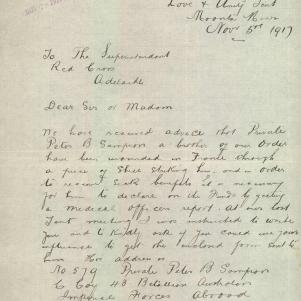 Love & Unity Tent
Moonta Mines
Nov 5th 1917
To The Superintendent
Red Cross
Adelaide
Dear Sir or Madam
We have received advice that Private
Peter B Sampson a brother of our Order
have been wounded in France through
a piece of Shell striking him, and in order
to receive Sick benefits it is necessary
for him to declare on the Funds by getting
a medical officers report. At our last
Tent meeting I was instructed to write
you and to kindly ask if you could use your
influence to get the enclosed form sent to
him His address
No 579 Private Peter B Sampson
C Coy 48 Battalion Australian
Imperial Forces Abroad